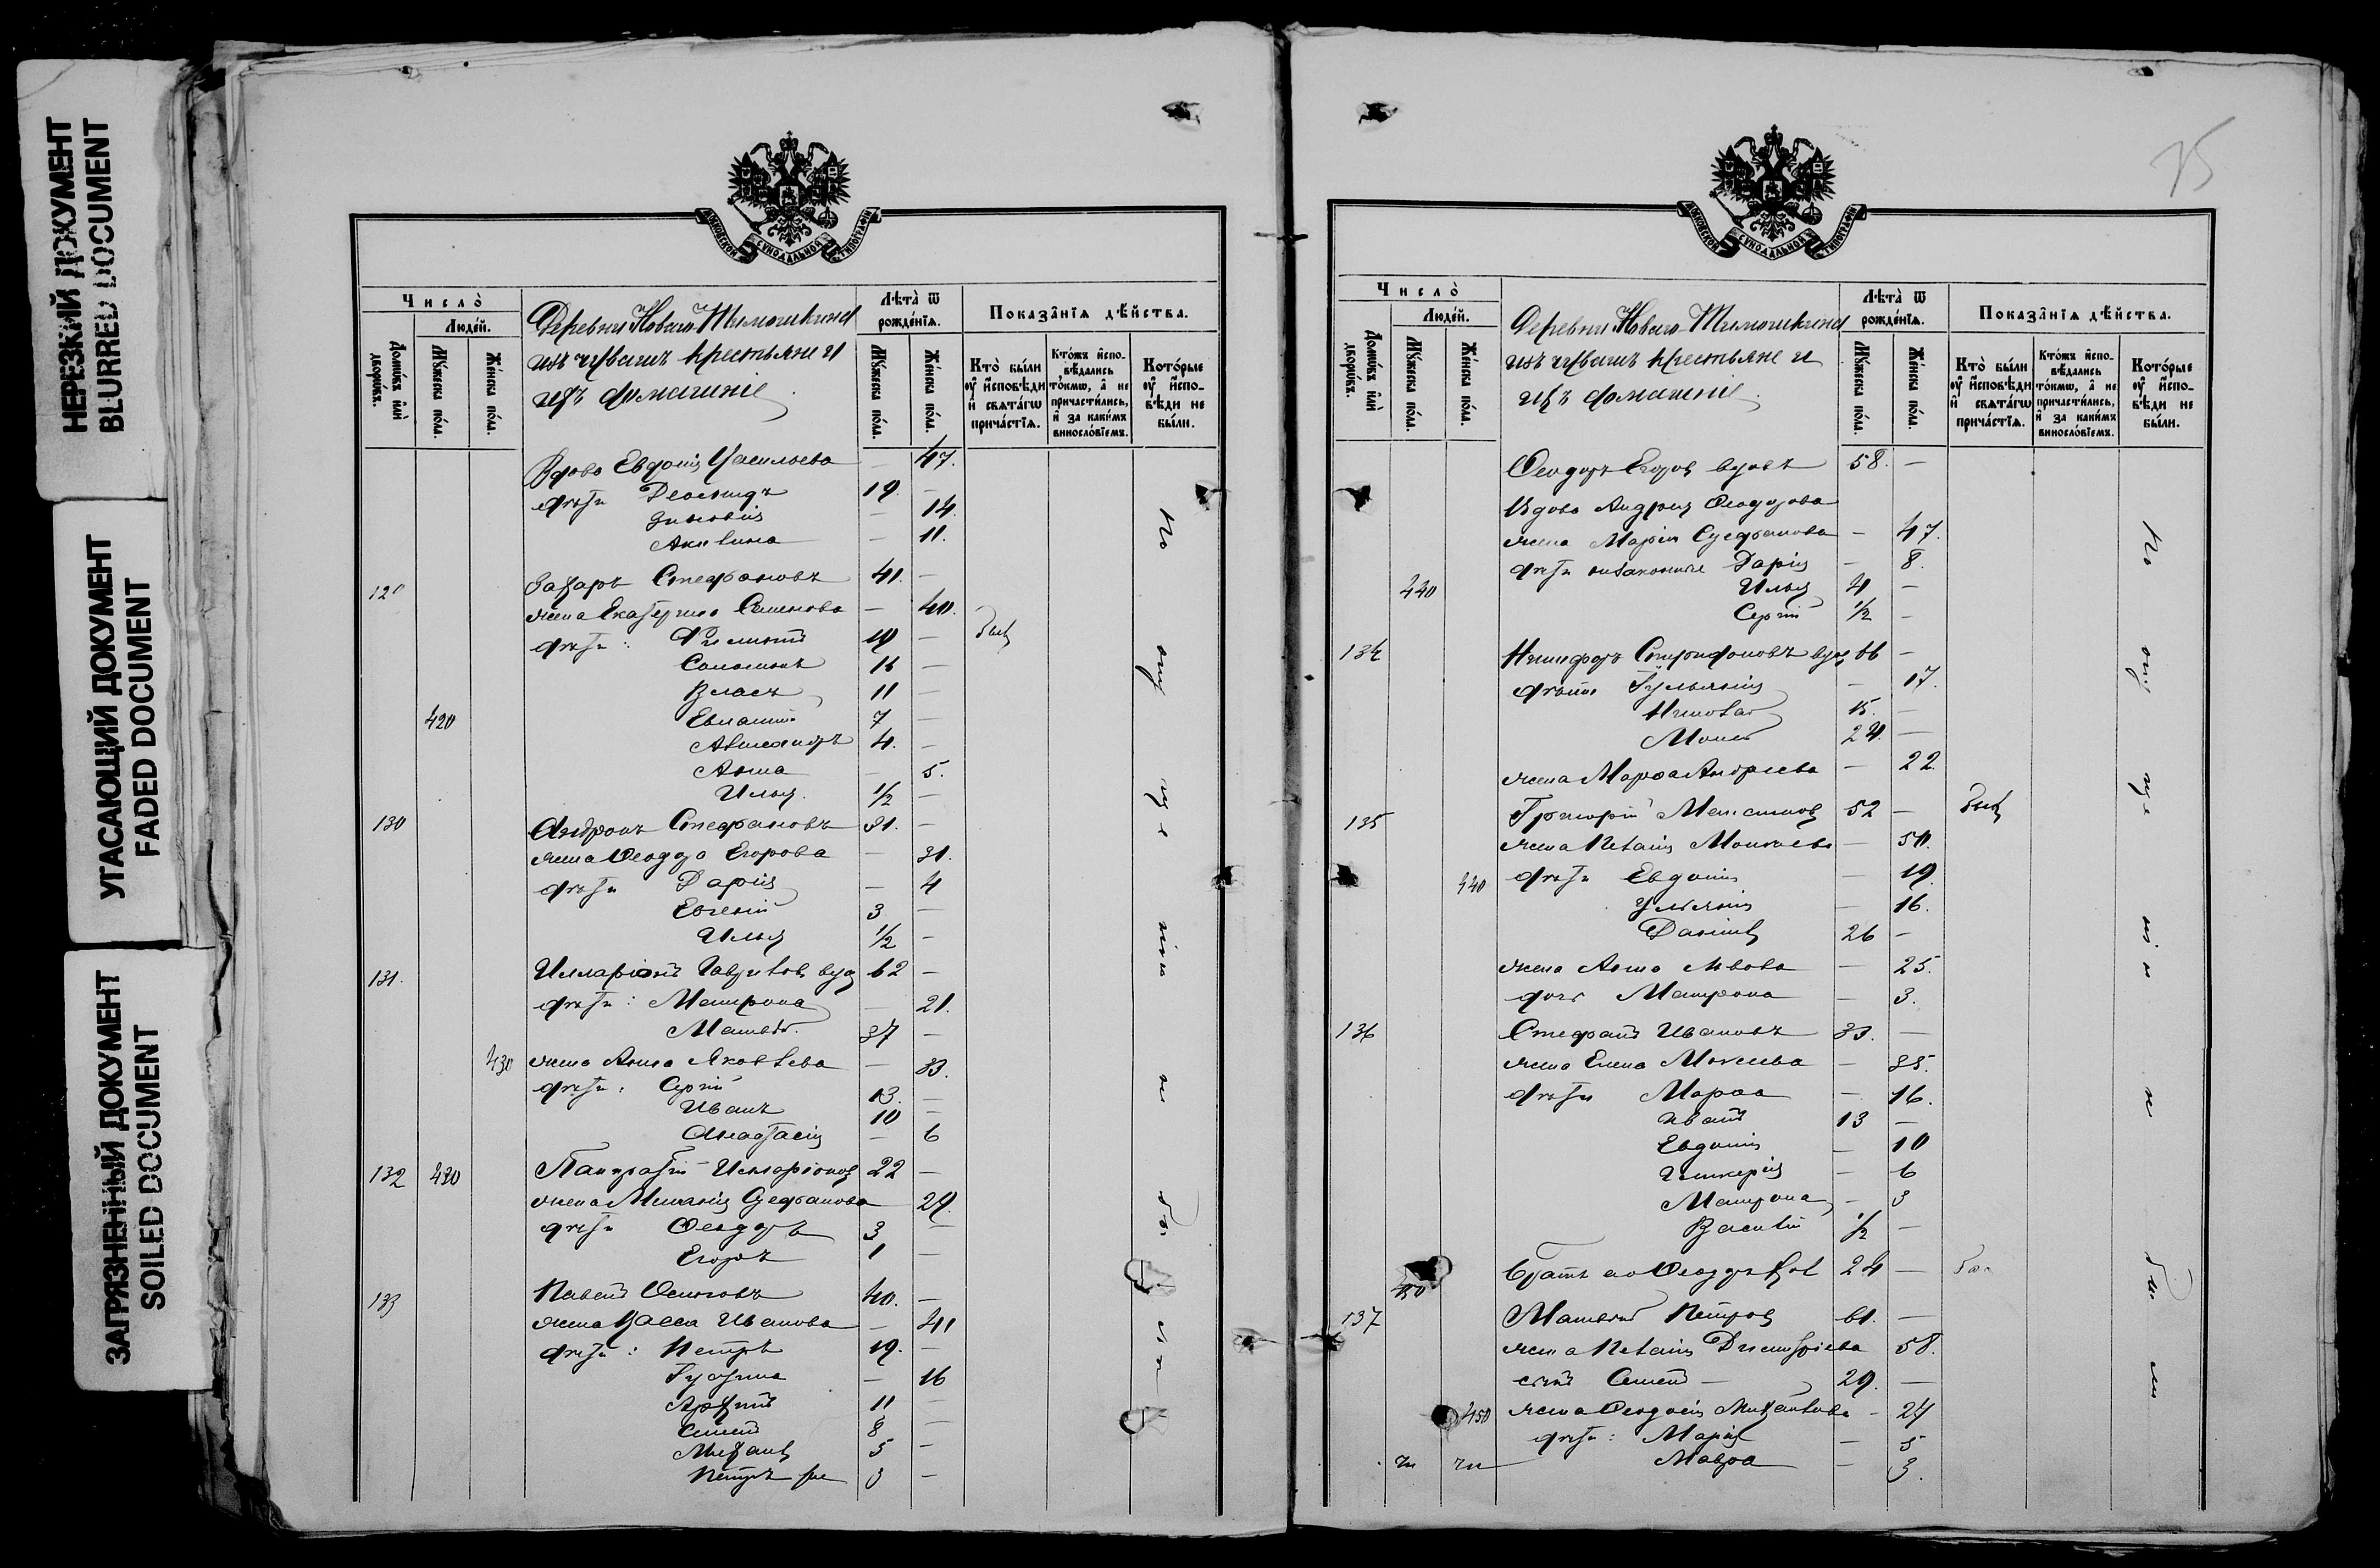 НЕРЕЗКИЙ ДОКУМЕНТ
BLURRED DOCUMENT
УГАСАЮЩИЙ ДОКУМЕНТ
FADED DOCUMENT
ЗАГРЯЗНЕННЫЙ ДОКУМЕНТ
SOILED DOCUMENT
МОСКОВСКОЙ СѴНОДАЛЬНОЙ ТИПОГРАФІИ
Число̀
Людéй.
Домѡ́въ и҆лѝ дворѡ́въ.
Мꙋ́жеска по́ла.
Же́нска по́ла.
Деревни Новаго Тимошкина
изъ чувашъ крестьяне и
ихъ домашніе
Лѣта̀ ѿ рожде́нїѧ.
Мꙋ́жеска по́ла.
Же́нска по́ла.
Показа̑нїѧ дѣ́йства.
Кто̀ бы́ли оу҆ и҆сповѣди и҆ свѧта́гѡ прича́стїѧ.
Кто́жъ и҆спо-вѣ́дались то́кмѡ, а҆ не причасти́лись, и҆ за каки́мъ виносло́вїемъ.
Кото́рые оу҆ и҆спо-вѣ́ди не бы́ли.
Вдова Евдокія Васильева — 47.
дѣти 19. —
Зиновія — 14.
Акилина — 11.
Захаръ Стефановъ 41. —
жена Екатерина Семенова — 40.
дѣти: Филиппъ 19 — былъ
Соломонъ 16 —
Власъ 11 —
420 Евлампій 7 —
Александръ 4. —
Анна — 5.
Илья. ½ —
130 Андронъ Стефановъ 31. —
жена Ѳеодора Егорова — 31.
дѣти Дарія — 4
Евгеній 3 —
Илья ½ —
131. Илларіонъ Гавриловъ вдов 62 —
дѣти: Матрона — 21.
Матвѣй. 37 —
430 жена Анна Яковлева — 33.
дѣти: Сергій 13. —
Иванъ 10 —
Анастасія — 6
132 430 Панкратій Илларіоновъ 22 —
жена Меланія Стефанова 24.
дѣти Ѳеодоръ 3 —
Егоръ 1 —
133 Павелъ Осиповъ 40. —
жена Васса Иванова — 41
дѣти: Петръ 19. —
— 16
11 —
Семенъ 8 —
Михаилъ 5 —
Петръ 3 —
По опущенію не были
75
МОСКОВСКОЙ СѴНОДАЛЬНОЙ ТИПОГРАФІИ
Число̀
Людéй.
Домѡ́въ и҆лѝ дворѡ́въ.
Мꙋ́жеска по́ла.
Же́нска по́ла.
Деревни Новаго Тимошкина
изъ чувашъ крестьяне и
ихъ домашніе.
Лѣта̀ ѿ рожде́нїѧ.
Мꙋ́жеска по́ла.
Же́нска по́ла.
Показа̑нїѧ дѣ́йства.
Кто̀ бы́ли оу҆ и҆сповѣди и҆ свѧта́гѡ прича́стїѧ.
Кто́жъ и҆спо-вѣ́дались то́кмѡ, а҆ не причасти́лись, и҆ за каки́мъ винослов́їемъ.
Кото́рые оу҆ и҆спо-вѣ́ди не бы́ли.
Ѳеодоръ Егоровъ вдовъ 58. —
Вдова Андрея Ѳеодорова
жена Марія Стефанова — 47.
дѣти незаконные Дарія — 8.
440 Илья 4 —
Сергій ½ —
134 Никифоръ вдов 66 —
дѣти Іуліанія — 17.
Николай 15. —
Моисей 24. —
жена Марѳа Андреева — 22
135 Григорій Максимовъ 52 — былъ
жена Пелагія — 50.
440 дѣти Евдокія — 19.
Ульянія — 16.
Даніилъ 26 —
жена Анна Львова — 25.
дочь Матрона — 3.
136 Стефанъ Ивановъ 33. —
жена Елена Мокеева — 35.
дѣти Марѳа — 16.
Иванъ 13 —
Евдокія — 10
Гликерія — 6
Матрона — 3
Василій ½ —
450 братъ его Ѳеодоръ 24 —
137 Матвѣй Петровъ 61. —
жена Пелагія Димитріева 58.
сынъ Семенъ — 29. —
450 жена Ѳеодосія Михайлова — 27
дѣти: Марія — 5
Мавра — 3.
По опущенію не были